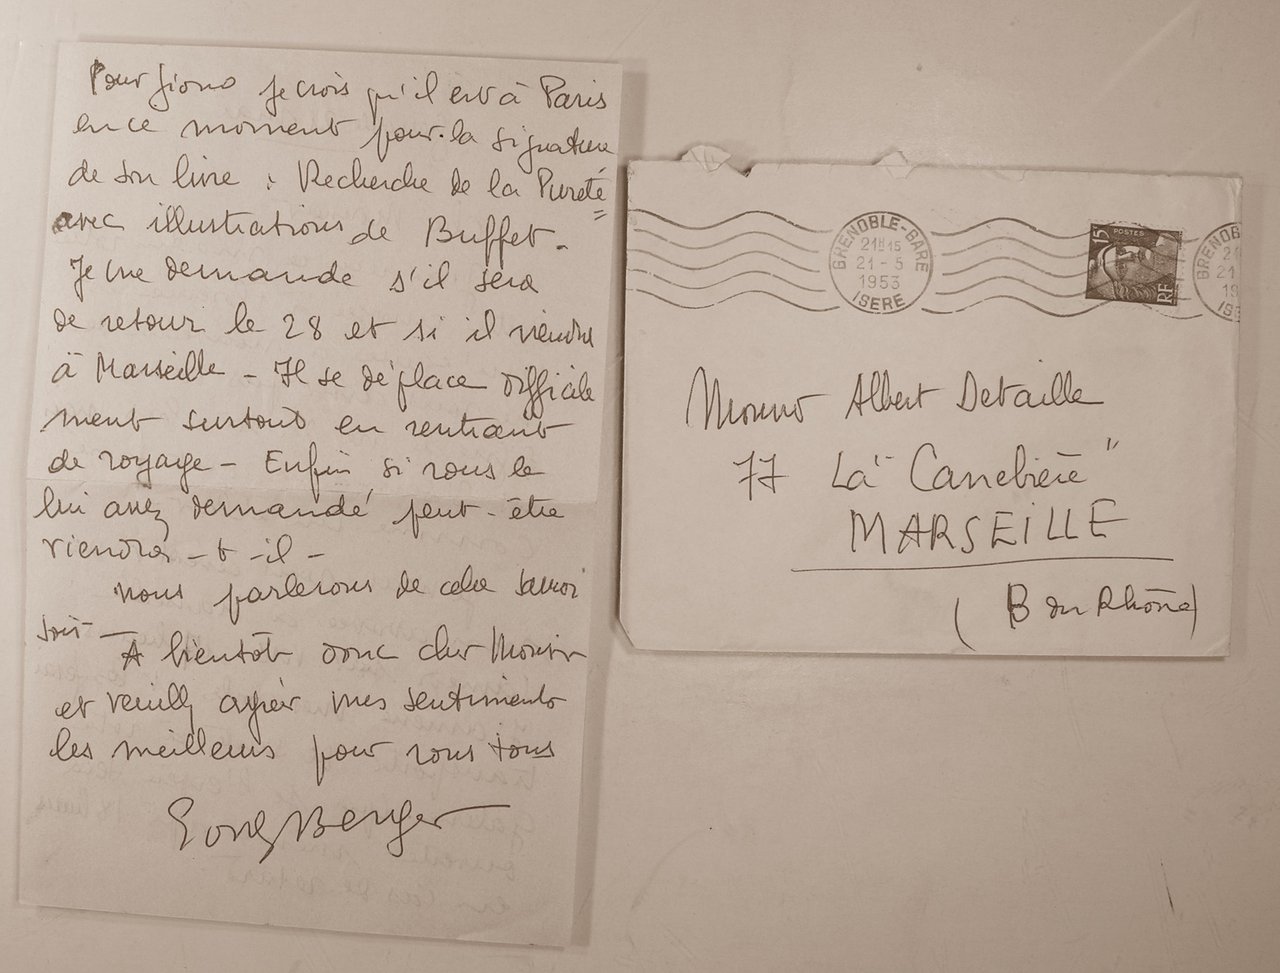 Pour Giono je crois qu'il est à Paris
en ce moment pour la signature
de son livre : Recherche de la Pureté
avec illustrations de Buffet.
Je me demande s'il sera
de retour le 28 et si il viendra
à Marseille - Il se déplace difficile
ment surtout en rentrant
de voyage - Enfin si vous le
lui avez demandé peut-être
viendra-t-il -
Nous parlerons de cela samedi
soir -
A bientôt donc cher Monsieur
et veuillez agréer mes sentiments
les meilleurs pour vous tous
Berger
GRENOBLE-GARE
21H15
21-5
1953
ISERE
15F
POSTES
RF
GRENOB
21
21
19
ISE
Monsieur Albert Detaille
77 La "Canebière"
MARSEILLE
(B du Rhône)